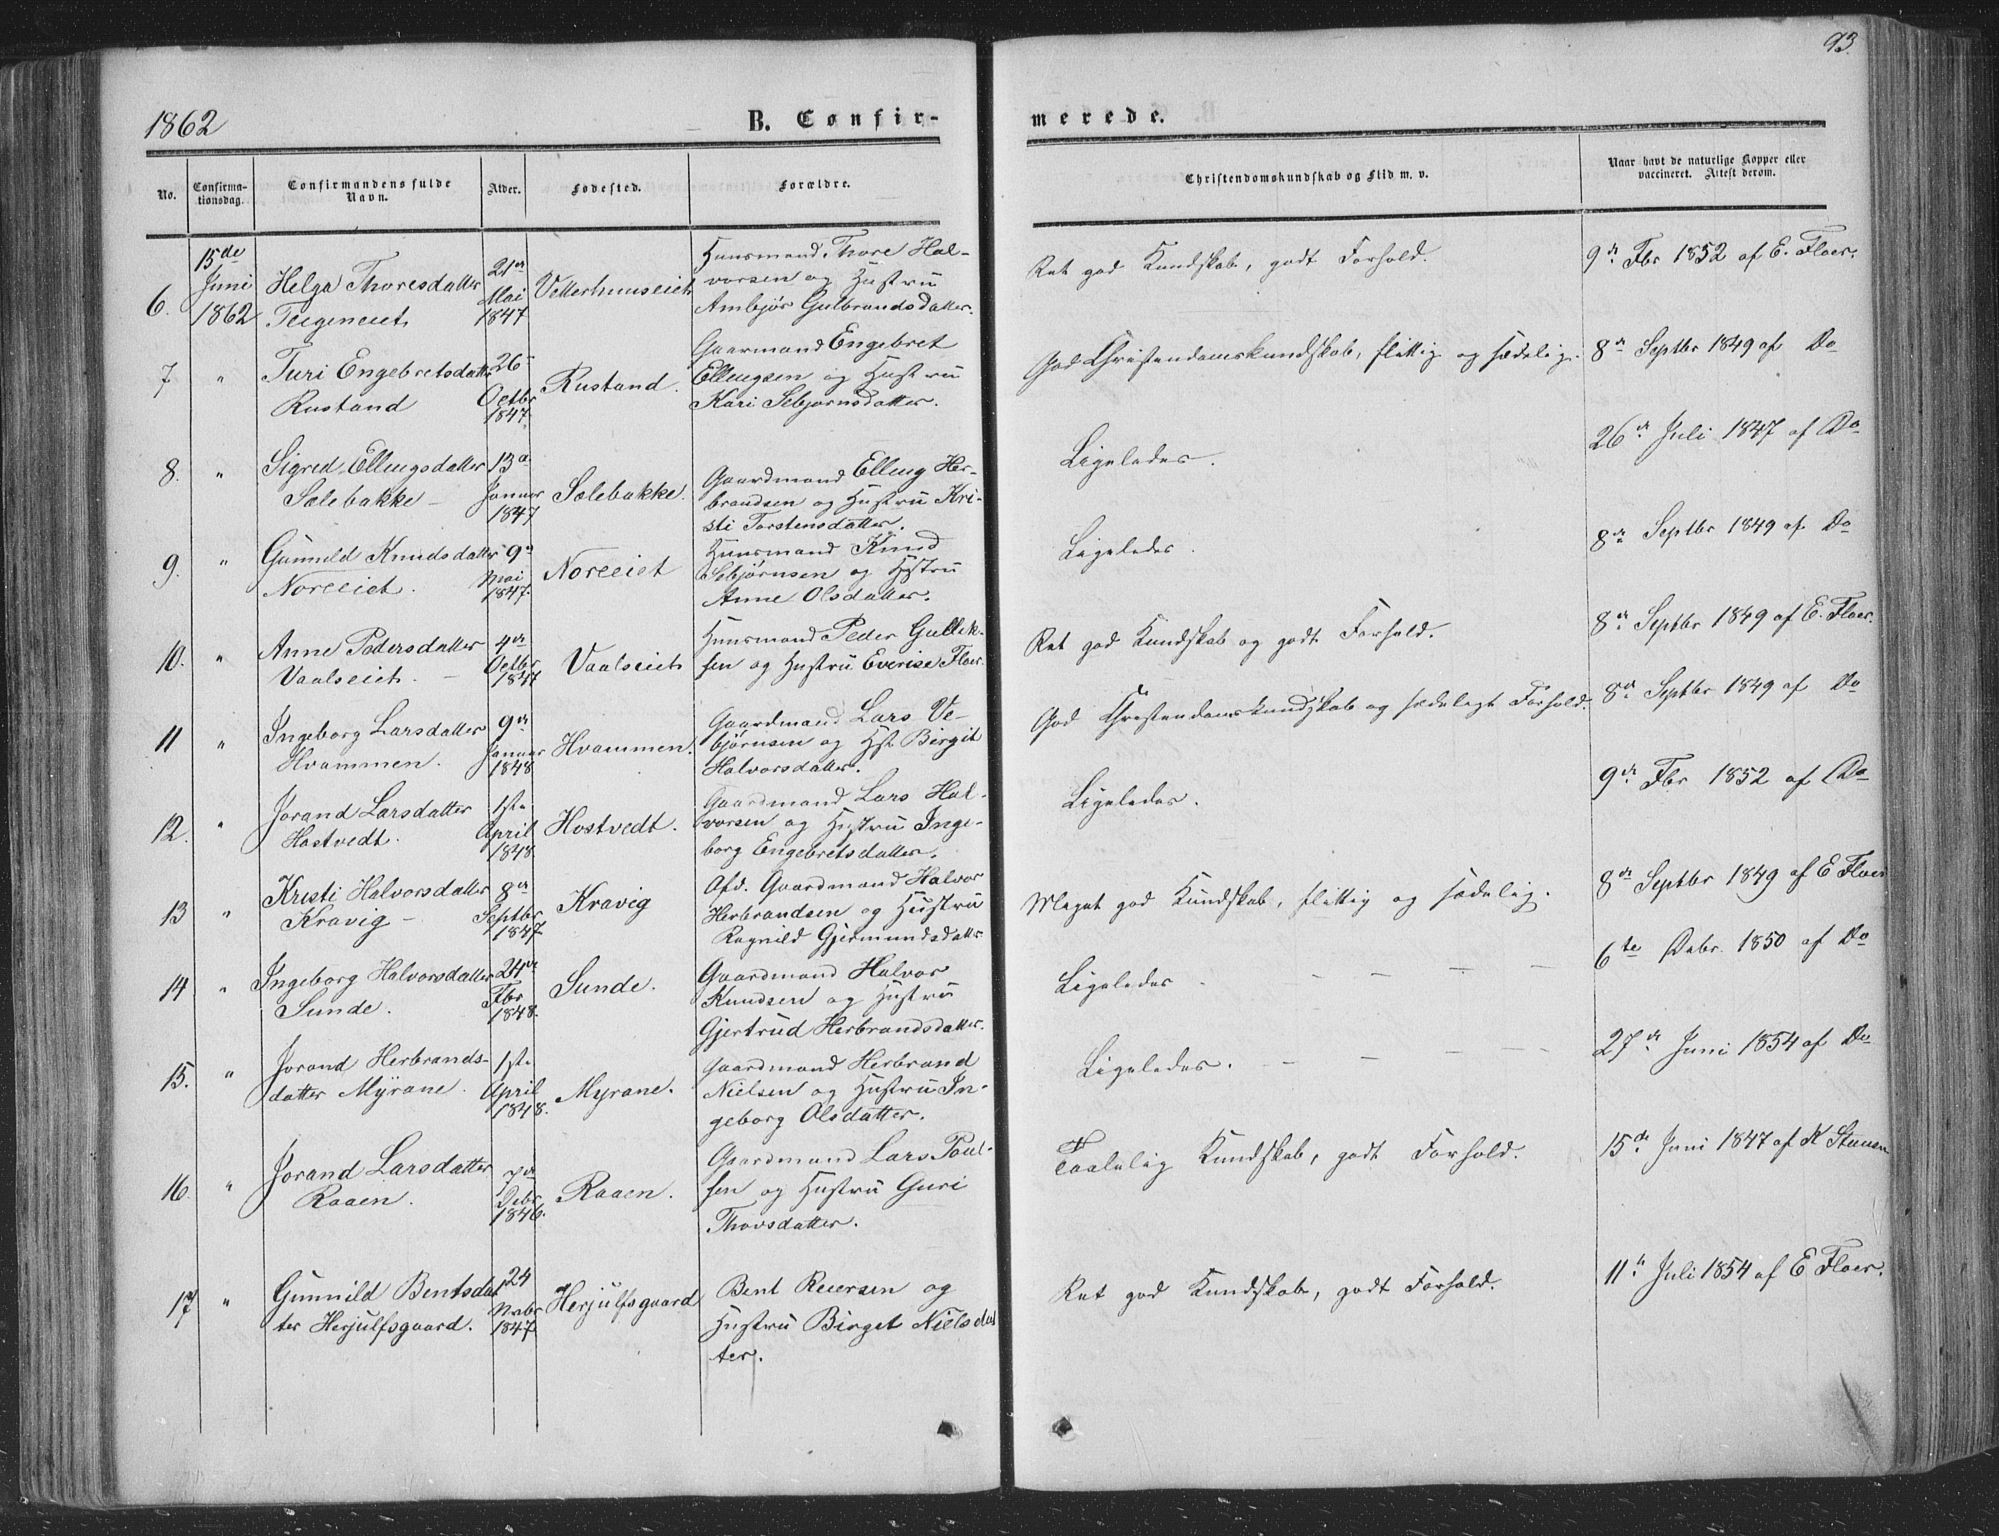 1862
B. Confir-
merede.
93.
No.
Confirma-
tionsdag.
Confirmandens fulde
Navn.
Alder.
Fødested.
Forældre.
Christendomskundskab og Flid m. v.
Naar havt de naturlige Kopper eller
vaccineret. Attest derom.
6.
15de
Juni
1862
Helga Thoresdatter
Teigeneiet
21de
Mai
1847
Vetterhuuseiet
Huusmand Thore Hal-
vorsen og Hustru
Ambjør Gulbrandsdatter.
Ret god Kundskab, godt Forhold.
9de Fbr 1852 af E. Floer.
7
"
Turi Engebretsdatter
Rustand
26
Octbr
1847.
Rustand.
Gaarmand Engebret
Ellengsen og Hustru
Kari Sebjørnsdatter.
God Christendomskundskab, flittig og sædelig.
8de Septbr 1849 af Do
8.
"
Sigred Ellingsdatter
Sælebakke -
13de
Januar
1847
Sælebakke.
Gaardmand Elling Her-
brandsen og Hustru Kri-
sti Torstensdatter.
Ligeledes.
26de Juli 1847 af Do
9.
"
Gunnild Knudsdatter
Noreeiet.
9de
Mai
1847.
Noreeiet
Huusmand Knud
Sebjørnsen og Hstru
Anne Olsdatter.
Ligeledes.
8de Septbr 1849 af Do
10.
"
Anne Pedersdatter
Vaalseiet. -
4de
Octbr
1847
Vaalseiet
Huusmand Peder Gullik-
sen og Hustru Everise Floer.
Ret god Kundskab og godt Forhold.
8de Septbr 1849 af E. Floer.
11
"
Ingeborg Larsdatter
Hvammen.
9de
Januar
1848
Hvammen.
Gaardmand Lars Ve-
bjørnsen og Hst. Birgit
Halvorsdatter.
God Christendomskundskab og sædeligt Forhold.
8de Septbr 1849 af Do
12.
"
Jorand Larsdatter
Hostvedt.
1ste
April
1848
Hostvedt.
Gaardmand Lars Hal-
vorsen og Hustru Inge-
borg Engebretsdatter.
Ligeledes.
9de Fbr 1852 af Do
13
"
Kristi Halvorsdatter
Kravig -
8de
Septbr
1847.
Kravig
Afd. Gaardmand Halvor
Herbrandsen og Hustru
Ragnild Gjermundsdatter
Meget god Kundskab, flittig og sædelig.
8de Septbr 1849 af E Floer
14
"
Ingeborg Halvorsdatter
Sunde.
24de
Fbr
1848.
Sunde.
Gaardmand Halvor
Knudsen og Hustru
Gjertrud Herbrandsdatter.
Ligeledes - - - - -
6te Debr. 1850 af Do
15.
"
Jorand Herbrands-
datter Myrane.
1ste
April
1848.
Myrane.
Gaardmand Herbrand
Nielsen og Hustru In-
geborg Olsdatter.
Ligeledes. - - - - -
27de Juni 1854 af Do
16.
"
Jorand Larsdatter
Raaen.
7de
Debr
1846.
Raaen.
Gaardmand Lars Poul-
sen og Hustru Guri
Thovsdatter.
Taalelig Kundskab, godt Forhold.
15de Juni 1847 af K Steneen
17
"
Gunnild Bentsdat
ter Herjulfsgaard.
24
Nvbr
1847.
Herjulfsgaard
Bent Reiersen og
Hustru Birget Nielsdat
ter.
Ret god Kundskab, godt Forhold.
11te Juli 1854 af E Floer.